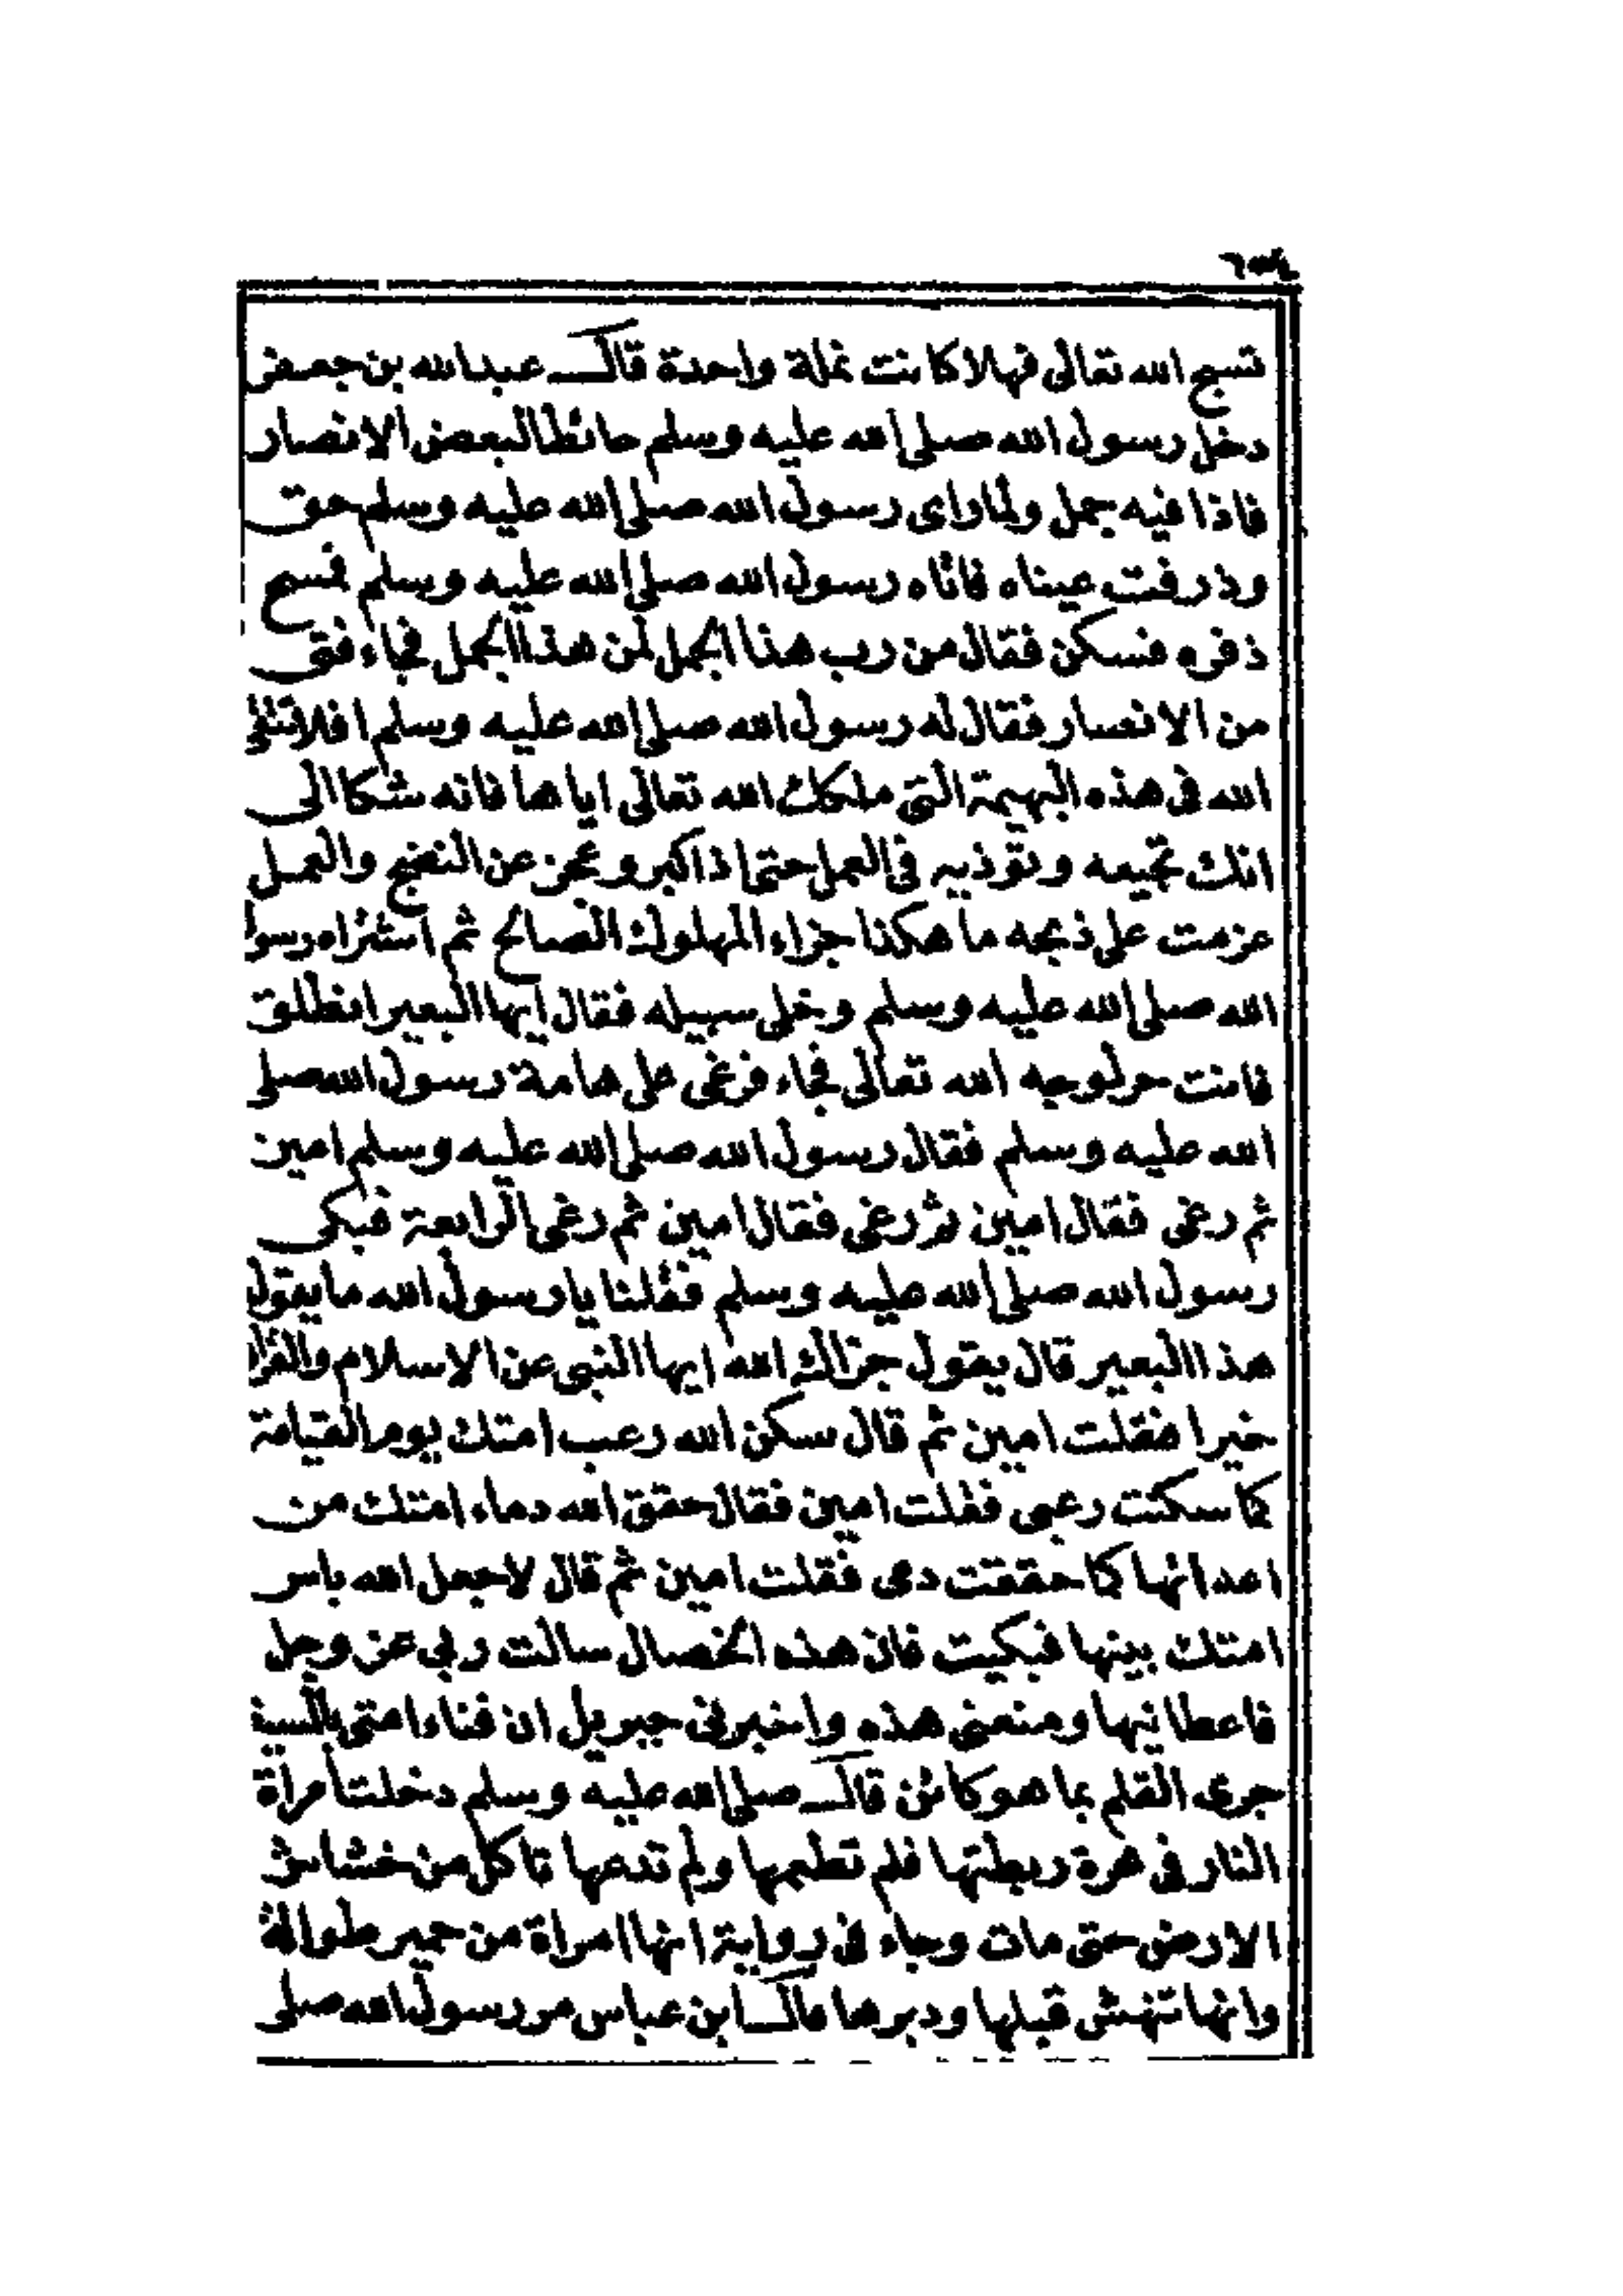 تسبح الله تعالى فهلا كانت نملة واحدة قال عبدالله بن جعفر
دخل رسول الله صلى الله عليه وسلم حائطا لبعض الانصار
فاذا فيه جمل ولما راى رسول الله صلى الله عليه وسلم حق
وذرفت عيناه فاتاه رسول الله صلى الله عليه وسلم فمسح
ذفره فسكن فقال من رب هذا الجمل لمن هذا الجمل فجاء فتى
من الانصار فقال له رسول الله صلى الله عليه وسلم افلا تتقى
الله فى هذه البهيمة التى ملكك الله تعالى اياها فانه شكا الى
انك تجيعه وتؤذيه فى العمل حتى اذا كبر وعجز عن النضح والعمل
عزمت على ذبحه ما هكذا جزاء المملوك الصالح ثم اشتراه رسول
الله صلى الله عليه وسلم وخلى سبيله فقال ايها البعير انطلق
فانت حر لوجه الله تعالى فجاء فرغى على هامة رسول الله صلى
الله عليه وسلم فقال رسول الله صلى الله عليه وسلم امين
ثم رغى فقال امين ثم رغى فقال امين ثم رغى الرابعة فبكى
رسول الله صلى الله عليه وسلم فقلنا يا رسول الله ما يقول
هذا البعير قال يقول جزاك الله ايها النبى عن الاسلام والقرآن
خيرا فقلت امين ثم قال سكن الله رعب امتك يوم القيامة
كما سكنت رعبى فقلت امين فقال حقن الله دماء امتك من
اعدائها كما حقنت دمى فقلت امين ثم قال لا جعل الله باس
امتك بينها فبكيت فان هذه الخصال سالت ربى عز وجل
فاعطانيها ومنعنى هذه واخبرنى جبريل ان فناء امتى بالسيف
جرى القلم بما هو كائن قال صلى الله عليه وسلم دخلت امراة
النار فى هرة ربطتها فلم تطعمها ولم تدعها تاكل من خشاش
الارض حتى مات وجاء فى رواية انها امراة من حمير طوالة
وانها تنهش قبلها ودبرها قال ابن عباس مر رسول الله صلى